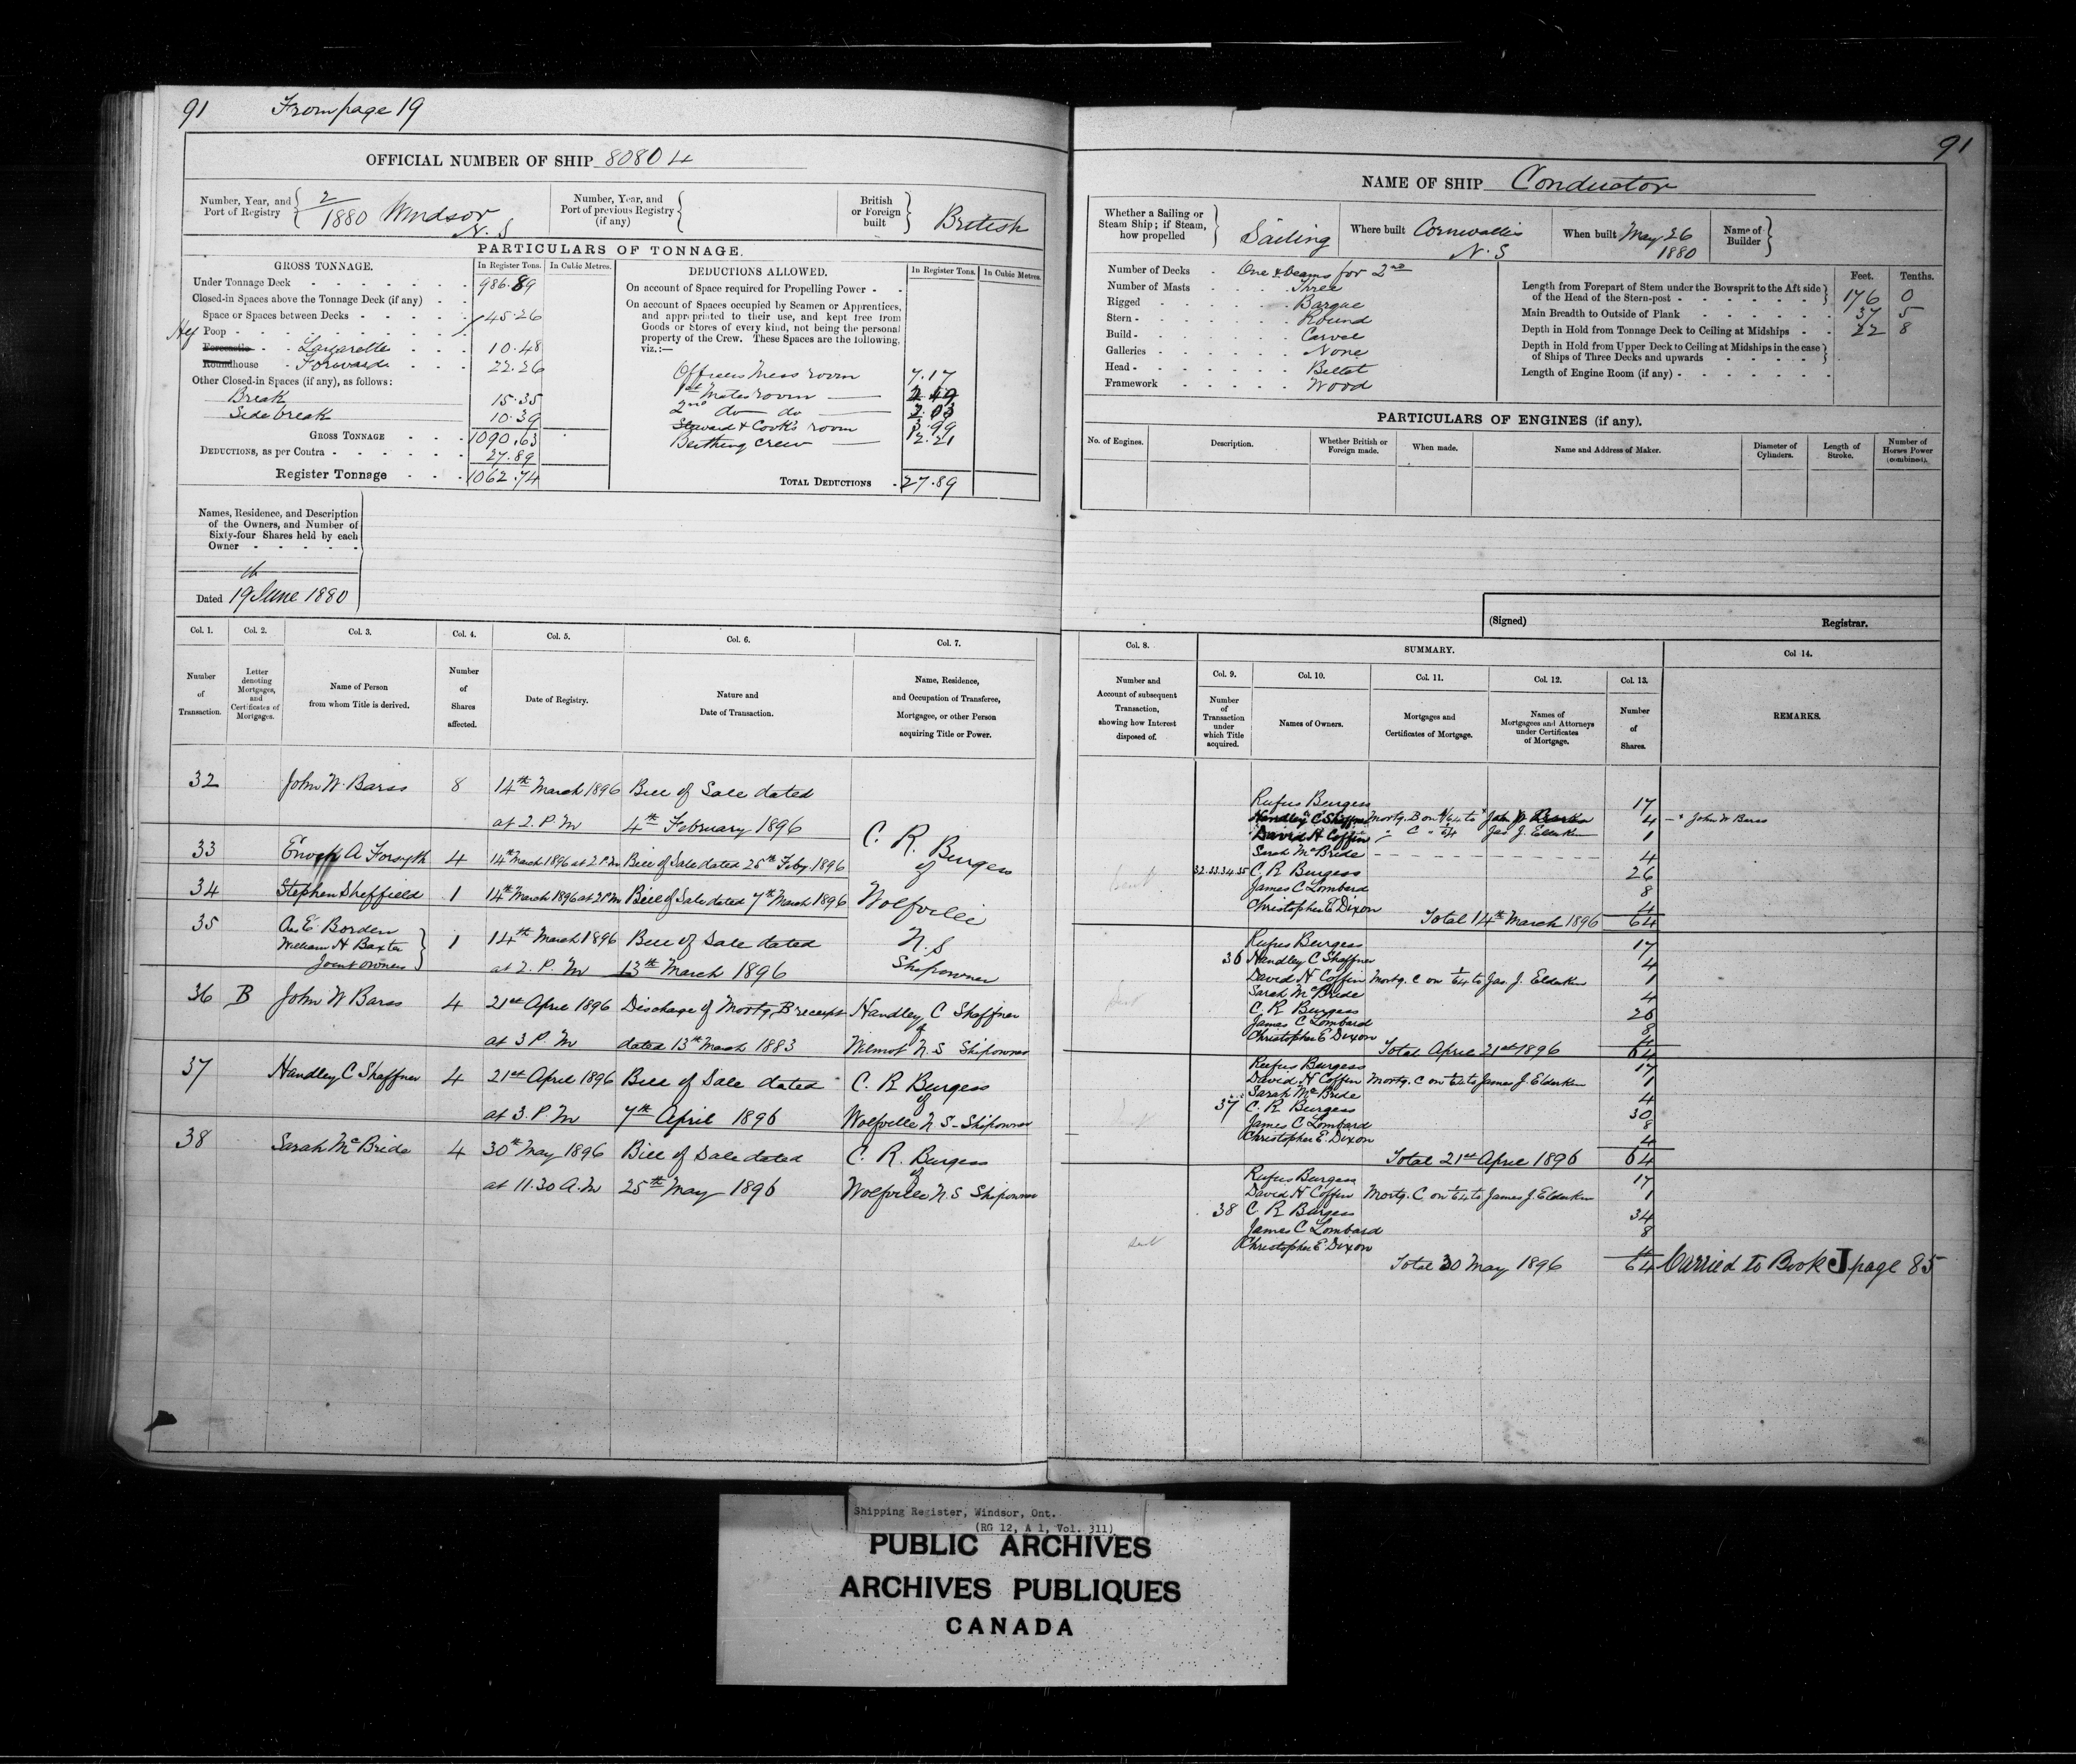 91 From page 19
OFFICIAL NUMBER OF SHIP 80804
Number, Year, and Port of Registry 2/1880 Windsor N.S
Number, Year, and Port of previous Registry (if any)
British or Foreign built British
PARTICULARS OF TONNAGE.
GROSS TONNAGE. In Register Tons. In Cubic Metres.
Under Tonnage Deck 986.89
Closed-in Spaces above the Tonnage Deck (if any)
Space or Spaces between Decks
Poop 45.26
Forecastle Lazarette 10.48
Roundhouse Forward 22.26
Other Closed-in Spaces (if any), as follows:
Break 15.35
Side break 10.39
GROSS TONNAGE 1090.63
DEDUCTIONS, as per Contra 27.89
Register Tonnage 1062.74
DEDUCTIONS ALLOWED. In Register Tons. In Cubic Metres.
On account of Space required for Propelling Power
On account of Spaces occupied by Seamen or Apprentices,
and appropriated to their use, and kept free from
Goods or Stores of every kind, not being the personal
property of the Crew. These Spaces are the following,
viz.:—
Officers Mess room 7.17
1st Mates room 2.49
2nd do do 2.03
Steward & Cook's room 3.99
Berthing Crew 12.21
TOTAL DEDUCTIONS 27.89
Names, Residence, and Description
of the Owners, and Number of
Sixty-four Shares held by each
Owner
Dated 19th June 1880
Col. 1. Col. 2. Col. 3. Col. 4. Col. 5. Col. 6. Col. 7.
Number of Transaction.
Letter denoting Mortgages, and Certificates of Mortgages.
Name of Person from whom Title is derived.
Number of Shares affected.
Date of Registry.
Nature and Date of Transaction.
Name, Residence, and Occupation of Transferee, Mortgagee, or other Person acquiring Title or Power.
32 John W. Barss 8 14th March 1896 Bill of Sale dated
at 2. P. M 4th February 1896
33 Enoch A Forsyth 4 14th March 1896 at 2 P.M Bill of Sale dated 25th Feby 1896
34 Stephen Sheffield 1 14th March 1896 at 2 P.M Bill of Sale dated 7th March 1896
35 E. Borden
William H Baxter
Joint owners 1 14th March 1896 Bill of Sale dated
at 2. P. M 13th March 1896
C. R. Burgess
of
Wolfville
N. S
Shipowner
36 B John W Barss 4 21st April 1896 Discharge of Mortg. B receipt Handley C Shaffner
of
at 3 P. M dated 13th March 1883 Wilmot N. S Shipowner
37 Handley C Shaffner 4 21st April 1896 Bill of Sale dated C. R Burgess
of
at 3. P. M 7th April 1896 Wolfville N S - Shipowner
38 Sarah McBride 4 30th May 1896 Bill of Sale dated C. R. Burgess
of
at 11.30 A.M 25th May 1896 Wolfville N.S Shipowner
91
NAME OF SHIP Conductor
Whether a Sailing or Steam Ship; if Steam, how propelled Sailing
Where built Cornwallis N.S
When built May 26 1880
Name of Builder
Number of Decks One & beams for 2nd
Number of Masts Three
Rigged Barque
Stern Round
Build Carvel
Galleries None
Head Billet
Framework Wood
Feet. Tenths.
Length from Forepart of Stem under the Bowsprit to the Aft side
of the Head of the Stern-post 176 0
Main Breadth to Outside of Plank 37 5
Depth in Hold from Tonnage Deck to Ceiling at Midships 22 8
Depth in Hold from Upper Deck to Ceiling at Midships in the case
of Ships of Three Decks and upwards
Length of Engine Room (if any)
PARTICULARS OF ENGINES (if any).
No. of Engines.
Description.
Whether British or Foreign made.
When made.
Name and Address of Maker.
Diameter of Cylinders.
Length of Stroke.
Number of Horses Power (combined).
(Signed) Registrar.
Col. 8. SUMMARY. Col 14.
Col. 9. Col. 10. Col. 11. Col. 12. Col. 13.
Number and Account of subsequent Transaction, showing how Interest disposed of.
Number of Transaction under which Title acquired.
Names of Owners.
Mortgages and Certificates of Mortgage.
Names of Mortgagees and Attorneys under Certificates of Mortgage.
Number of Shares.
REMARKS.
Rufus Burgess 17
Handley C Shaffner Mortg. B on 4/64 to 4 John W Barss
David H Coffin " C " 1/64 Jas J. Elderkin 1
Sarah McBride 4
32.33.34.35 C. R Burgess 26
James C Lombard 8
Christopher E Dixon 4
Total 14th March 1896 64
Rufus Burgess 17
36 Handley C Shaffner 4
David H Coffin Mortg. C on 1/64 to Jas. J. Elderkin 1
Sarah McBride 4
C. R Burgess 26
James C Lombard 8
Christopher E Dixon 4
Total April 21st 1896 64
Rufus Burgess 17
David H Coffin Mortg. C on 1/64 to James J. Elderkin 1
Sarah McBride 4
37 C. R Burgess 30
James C Lombard 8
Christopher E Dixon 4
Total 21st April 1896 64
Rufus Burgess 17
David H Coffin Mortg. C on 1/64 to James J. Elderkin 1
38 C R Burgess 34
James C Lombard 8
sent Christopher E Dixon 4
Total 30 May 1896 64 Carried to Book J page 85
Shipping Register, Windsor, Ont.
(RG 12, A 1, Vol. 311)
PUBLIC ARCHIVES
ARCHIVES PUBLIQUES
CANADA